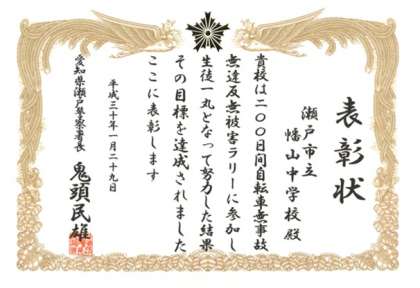 表彰状
瀬戸市立
幡山中学校殿
貴校は二〇〇日間自転車無事故
無違反無被害ラリーに参加し
生徒一丸となって努力した結果
その目標を達成されました
ここに表彰します
平成三十年一月二十九日
愛知県瀬戸警察署長
鬼頭民雄